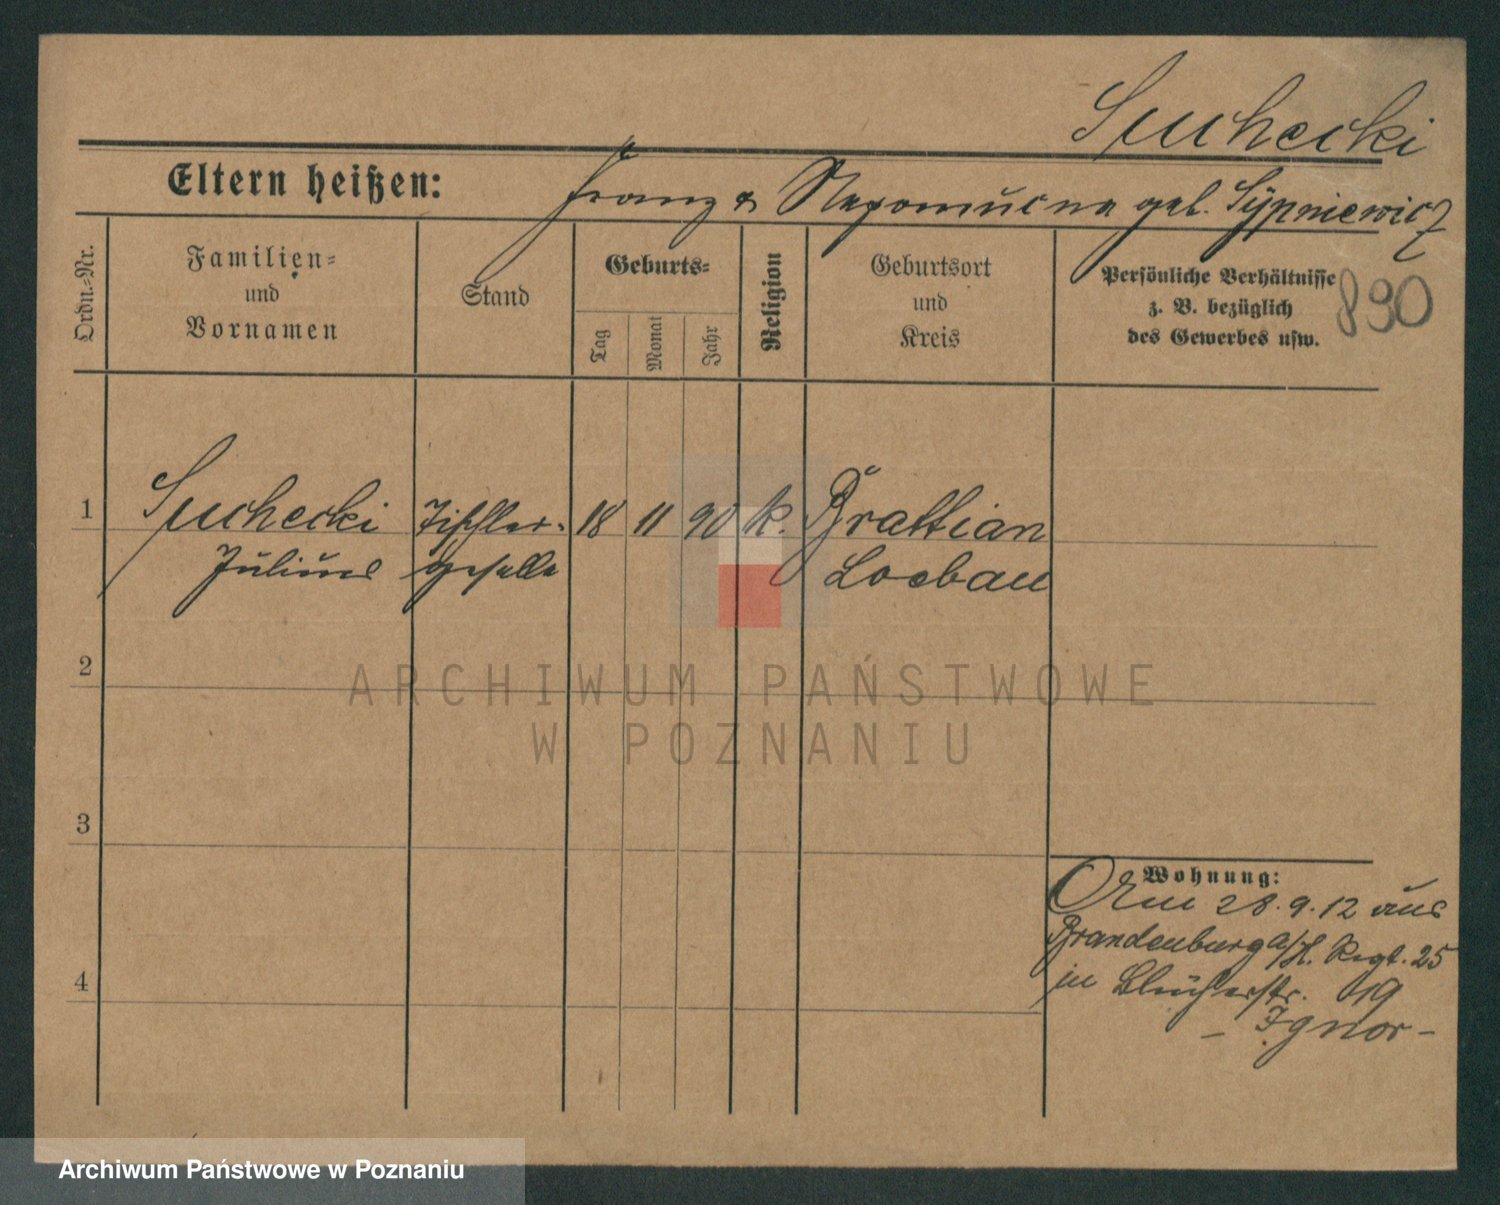 Suchecki
Eltern heißen: Franz & Nepomucna geb. Sypniewicz
Ordn.-Nr.
Familien-
und
Vornamen
Stand
Geburts-
Tag
Monat
Jahr
Religion
Geburtsort
und
Kreis
Persönliche Verhältnisse
z. B. bezüglich
des Gewerbes usw.
890
1 Suchecki Tischler- 18 11 90 k. Brattian
Julius geselle Loebau
2
ARCHIWUM PAŃSTWOWE
W POZNANIU
3
Wohnung:
28.9.12 aus
Brandenburg a/H. Regt. 25
in Blücherstr. 19
4
- Ignor -
Archiwum Państwowe w Poznaniu